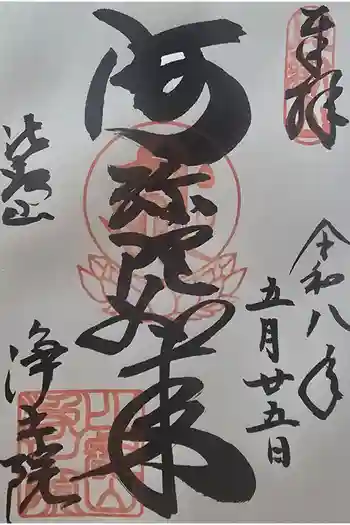 奉拝
令和八年
五月廿五日
阿弥陀如来
浄土院